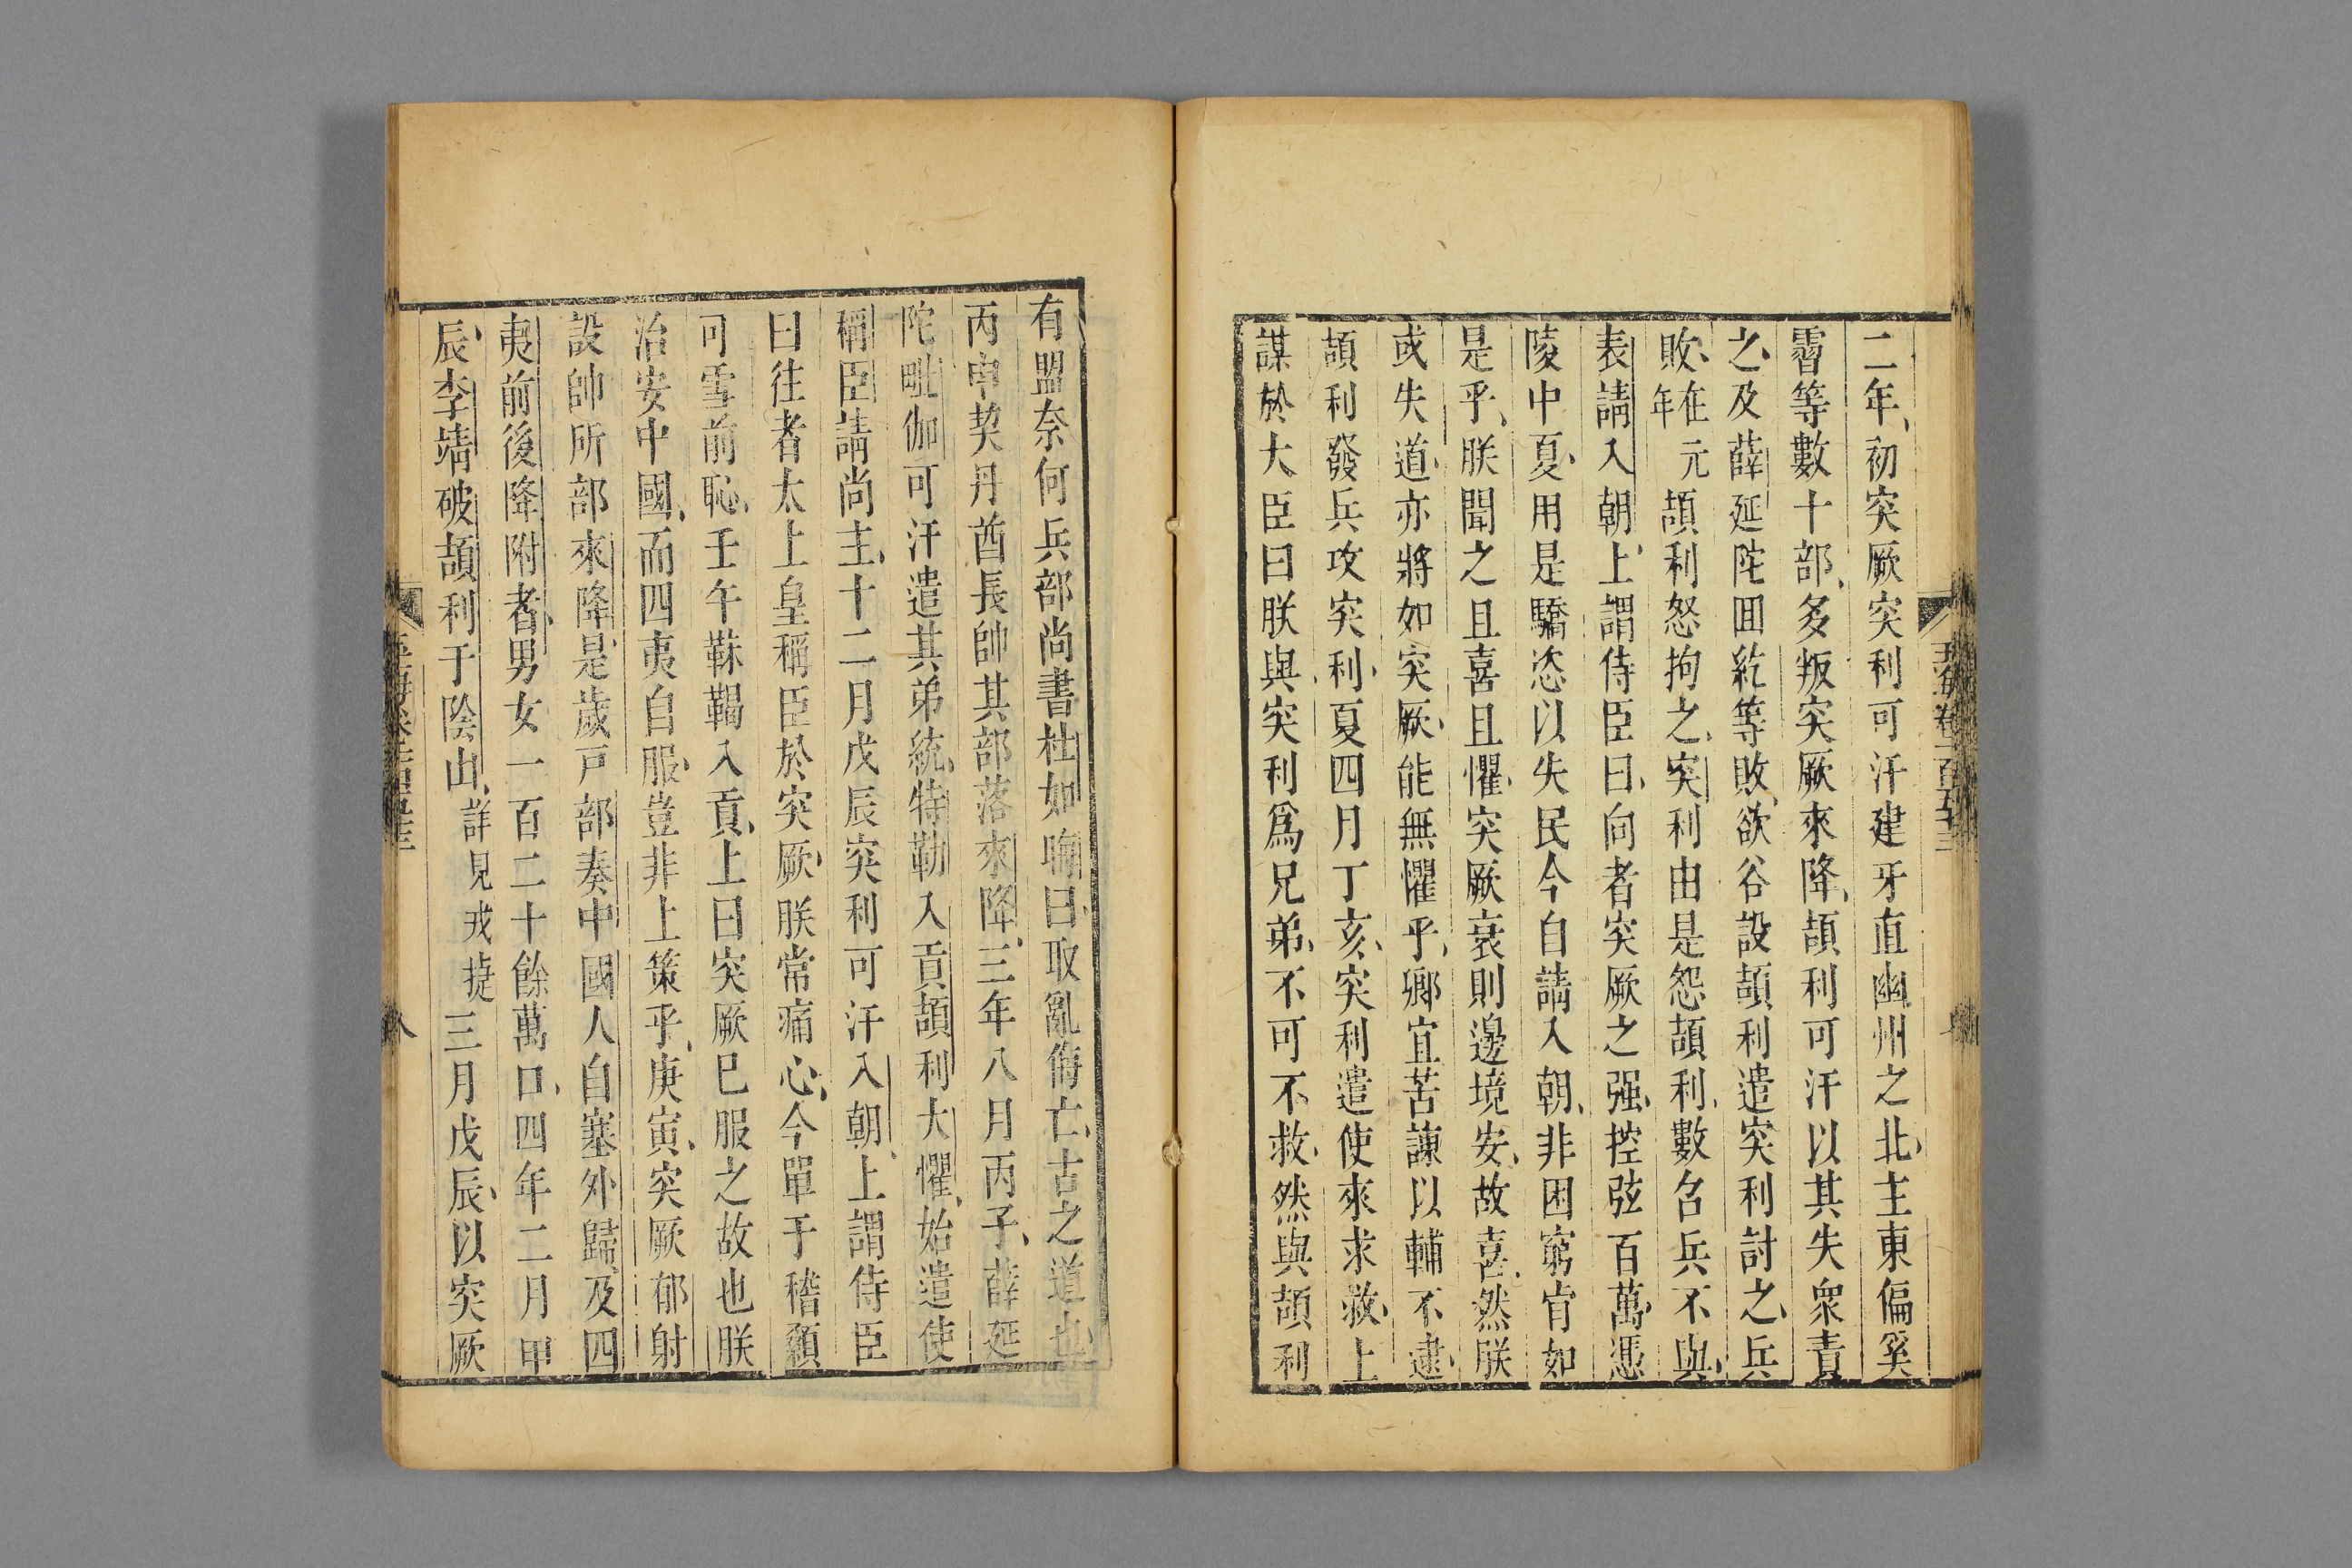 二年、初突厥突利可汗建牙直幽州之北、主東偏奚
霫等數十部、多叛突厥來降、頡利可汗以其失衆責
之、及薛延陀回紇等敗、欲谷設頡利遣突利討之、兵
敗、在元年頡利怒拘之、突利由是怨頡利、數召兵不與、
表請入朝、上謂侍臣曰、向者突厥之强、控弦百萬、憑
陵中夏、用是驕恣以失民今自請入朝、非困窮肯如
是乎、朕聞之且喜且懼、突厥衰則邊境安、故喜、然朕
或失道、亦將如突厥、能無懼乎、卿宜苦諫以輔不逮、
頡利發兵攻突利、夏四月丁亥、突利遣使來求救、上
謀於大臣曰朕與突利爲兄弟、不可不救、然與頡利
有盟奈何兵部尚書杜如晦曰、取亂侮亡、古之道也、
丙申契丹酋長帥其部落來降、三年八月丙子、薛延
陀毗伽可汗遣其弟統、特勒入貢頡利大懼、始遣使
稱臣請尚主、十二月戊辰突利可汗入朝、上謂侍臣
曰往者太上皇稱臣於突厥、朕常痛心、今單于稽顙
可雪前恥、壬午靺鞨入貢、上曰突厥巳服之故也朕
治安中國、而四夷自服、豈非上策乎、庚寅、突厥郁射
設帥所部來降、是歲戸部奏中國人自塞外歸、及四
夷前後降附者、男女一百二十餘萬口、四年二月甲
辰、李靖破頡利于陰山、詳見戎捷三月戊辰、以突厥
玉海卷一百五十三
八